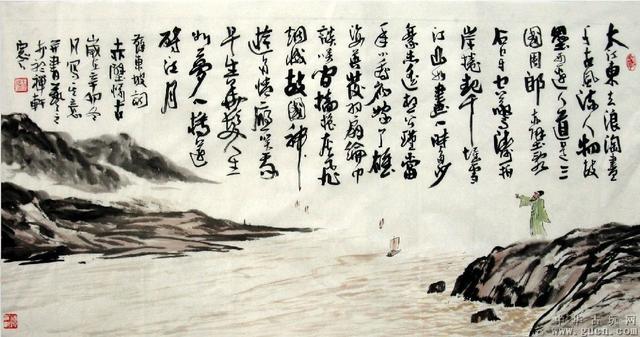 大江東去浪淘盡
千古風流人物故
壘西邊人道是三
國周郎赤壁
拍
岸捲起千堆雪
江山如畫一時多少
豪傑遙想公瑾當
年小喬初嫁了雄
姿英發羽扇綸巾
談笑間檣櫓灰飛
煙滅故國神
遊多情應笑我
早生華髮人生
如夢一樽還
酹江月
蘇東坡詞
赤壁懷古
辛卯冬
月寫其意
并書
禪軒
中华古玩网
www.gucn.com